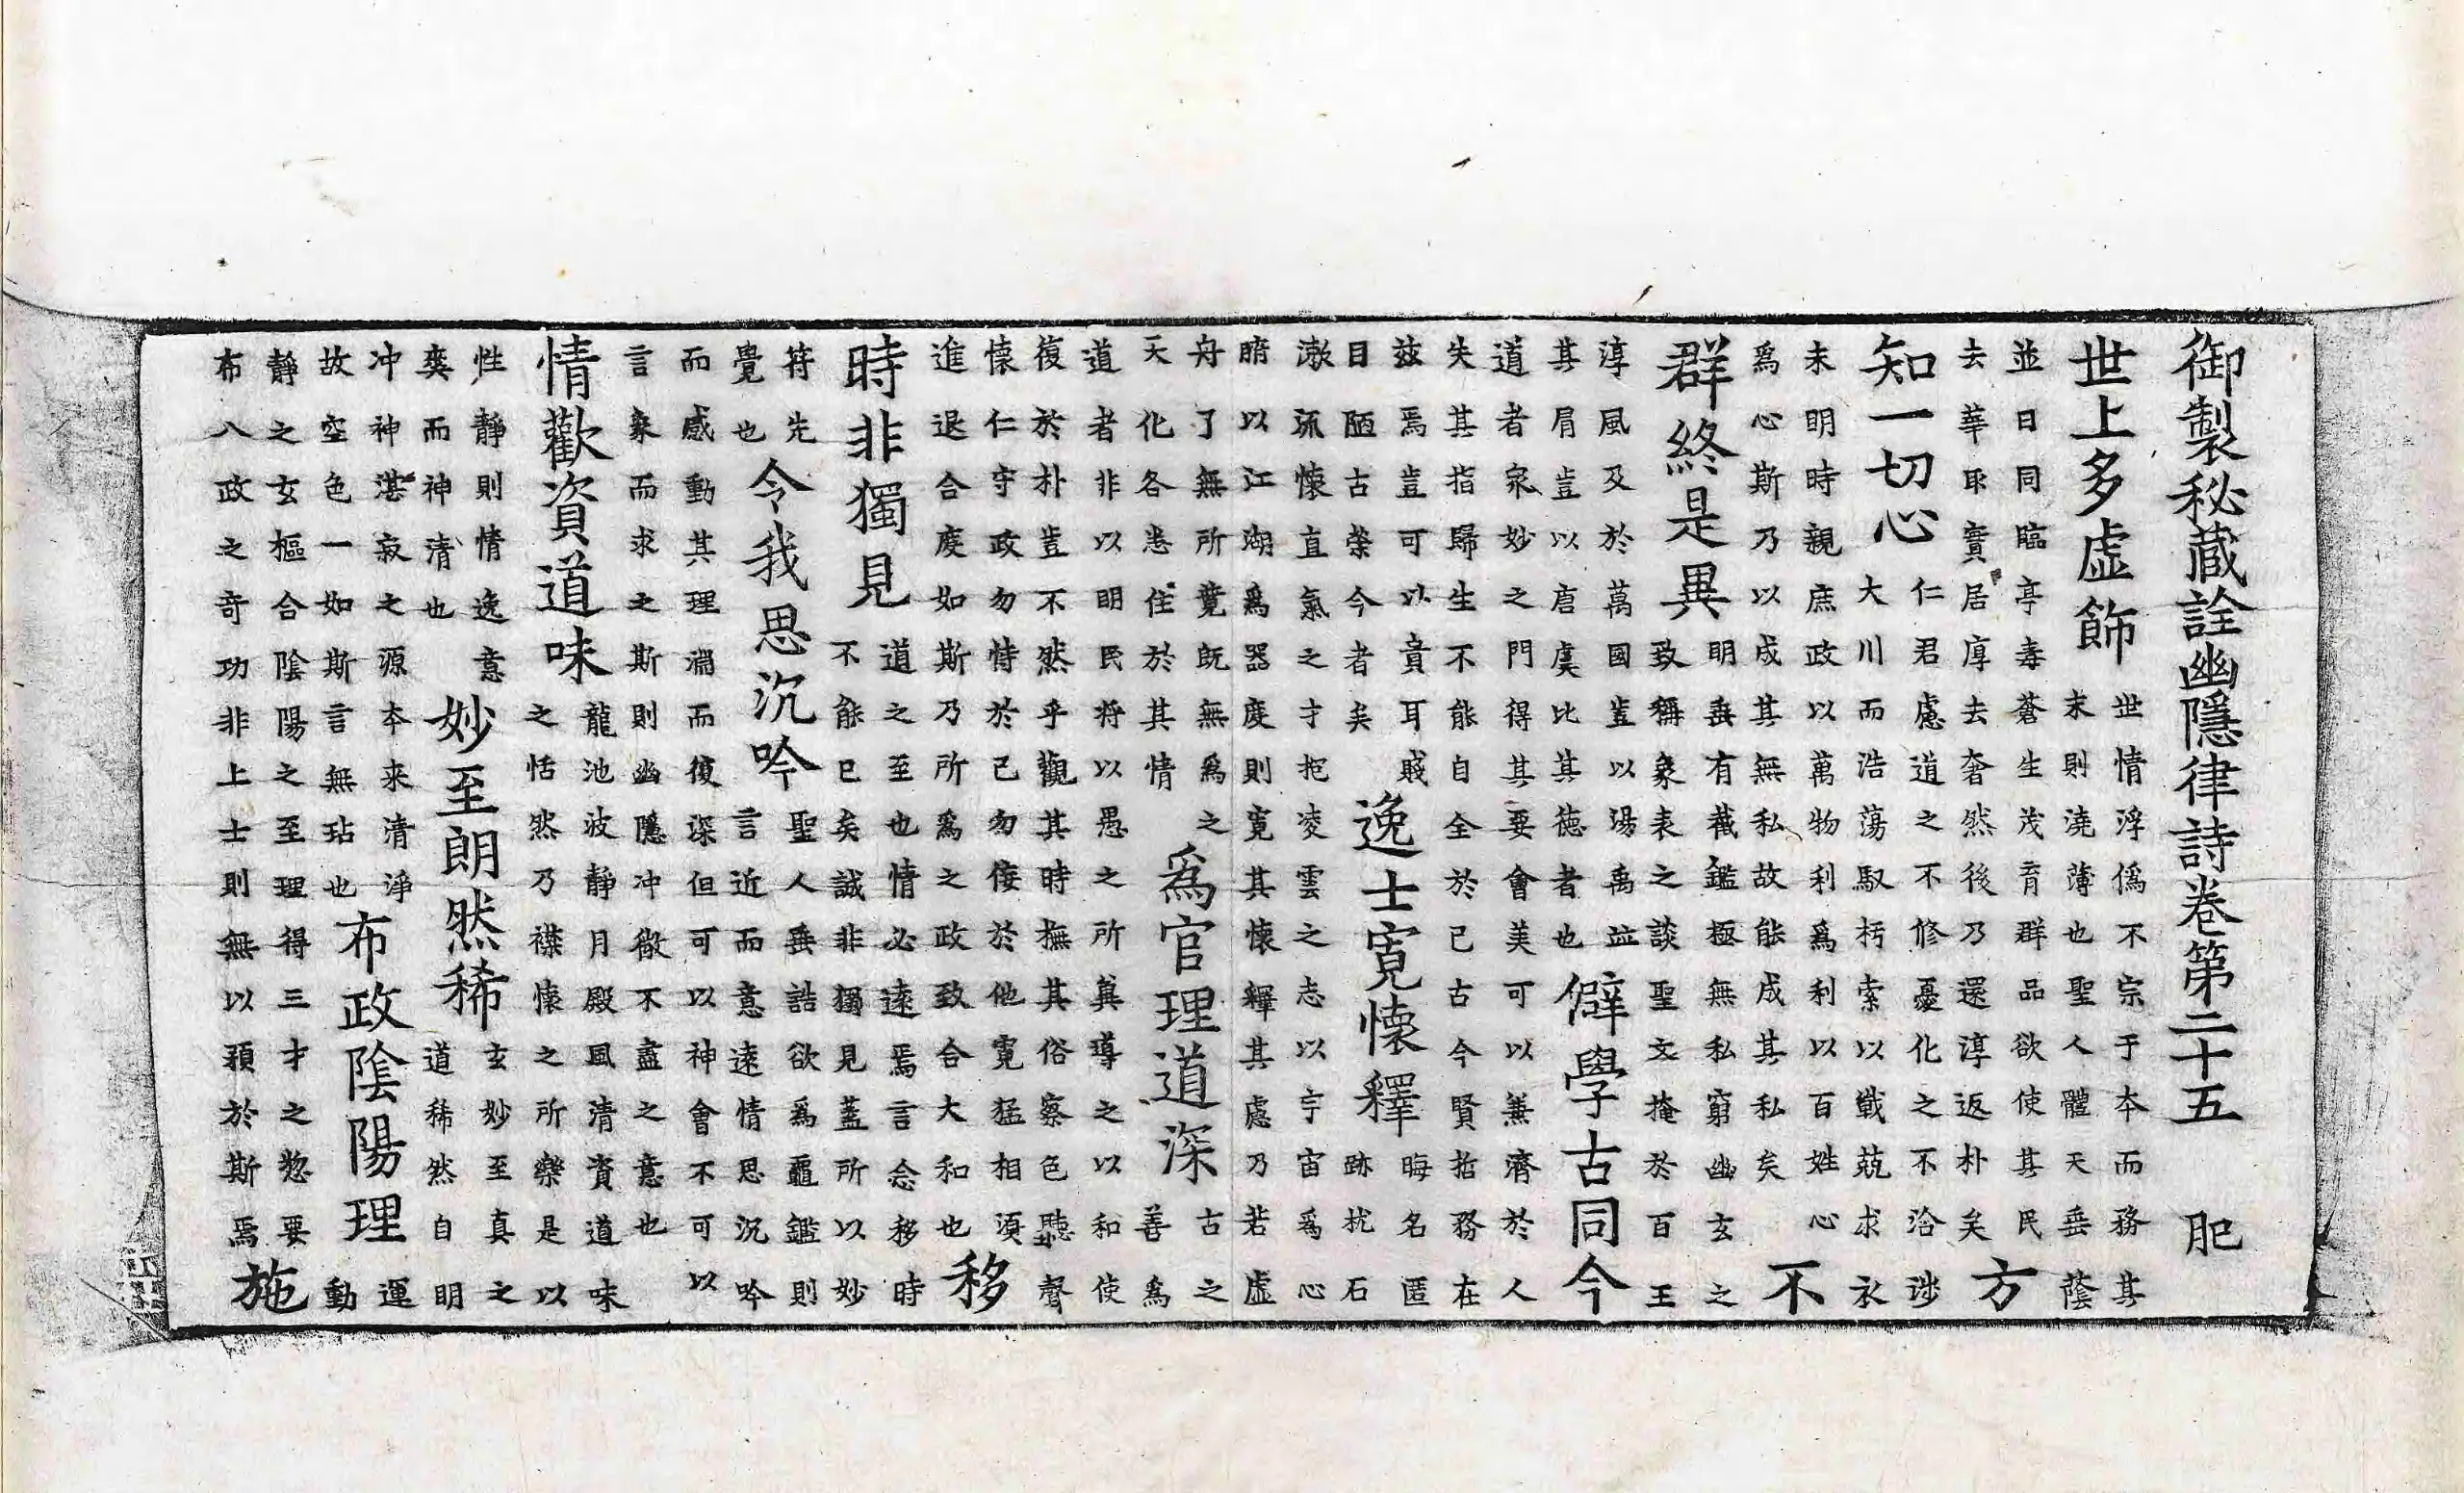 御製秘藏詮幽隱律詩卷第二十五　肥
世上多虛飾
世情浮僞不宗于本而務其
末則澆薄也聖人體天垂蔭
並日同臨亭毒蒼生茂育群品欲使其民
去華取實居厚去奢然後乃還淳返朴矣
方
知一切心
仁君慮道之不修憂化之不洽涉
大川而浩蕩馭朽索以戰兢求衣
未明時親庶政以萬物利爲利以百姓心
爲心斯乃以成其無私故能成其私矣
不
群終是異
明垂有截鑑極無私窮幽玄之
致稱象表之談聖文掩於百王
淳風及於萬國豈以湯禹並
其肩豈以唐虞比其德者也
僻學古同今
道者衆妙之門得其要會美可以兼濟於人
失其指歸生不能自全於己古今賢哲務在
茲焉豈可以賁耳賤
目陋古榮今者矣
逸士寬懷釋
晦名匿
跡枕石
漱流懷直氣之才抱凌雲之志以宇宙爲心
腑以江湖爲器度則寬其懷釋其慮乃若虛
舟了無所競旣無爲之
天化各恙住於其情
爲官理道深
古之
善爲
道者非以明民將以愚之所冀導之以和使
復於朴豈不然乎觀其時撫其俗察色聽聲
懷仁守政勿恃於己勿倿於他寬猛相須
進退合度如斯乃所爲之政致合大和也
移
時非獨見
道之至也情必遠焉言念移時
不能已矣誠非獨見蓋所以妙
符先
覺也
令我思沉吟
聖人垂誥欲爲龜鑑則
言近而意遠情思沉吟
而感動其理淵而復深但可以神會不可以
言象而求之斯則幽隱冲微不盡之意也
情歡資道味
龍池波靜月殿風清資道味
之恬然乃襟懷之所樂是以
性靜則情逸意
爽而神清也
妙至朗然稀
玄妙至真之
道稀然自明
冲神湛寂之源本來清淨
故空色一如斯言無玷也
布政陰陽理
運
動
靜之玄樞合陰陽之至理得三才之惣要
布八政之奇功非上士則無以預於斯焉
施